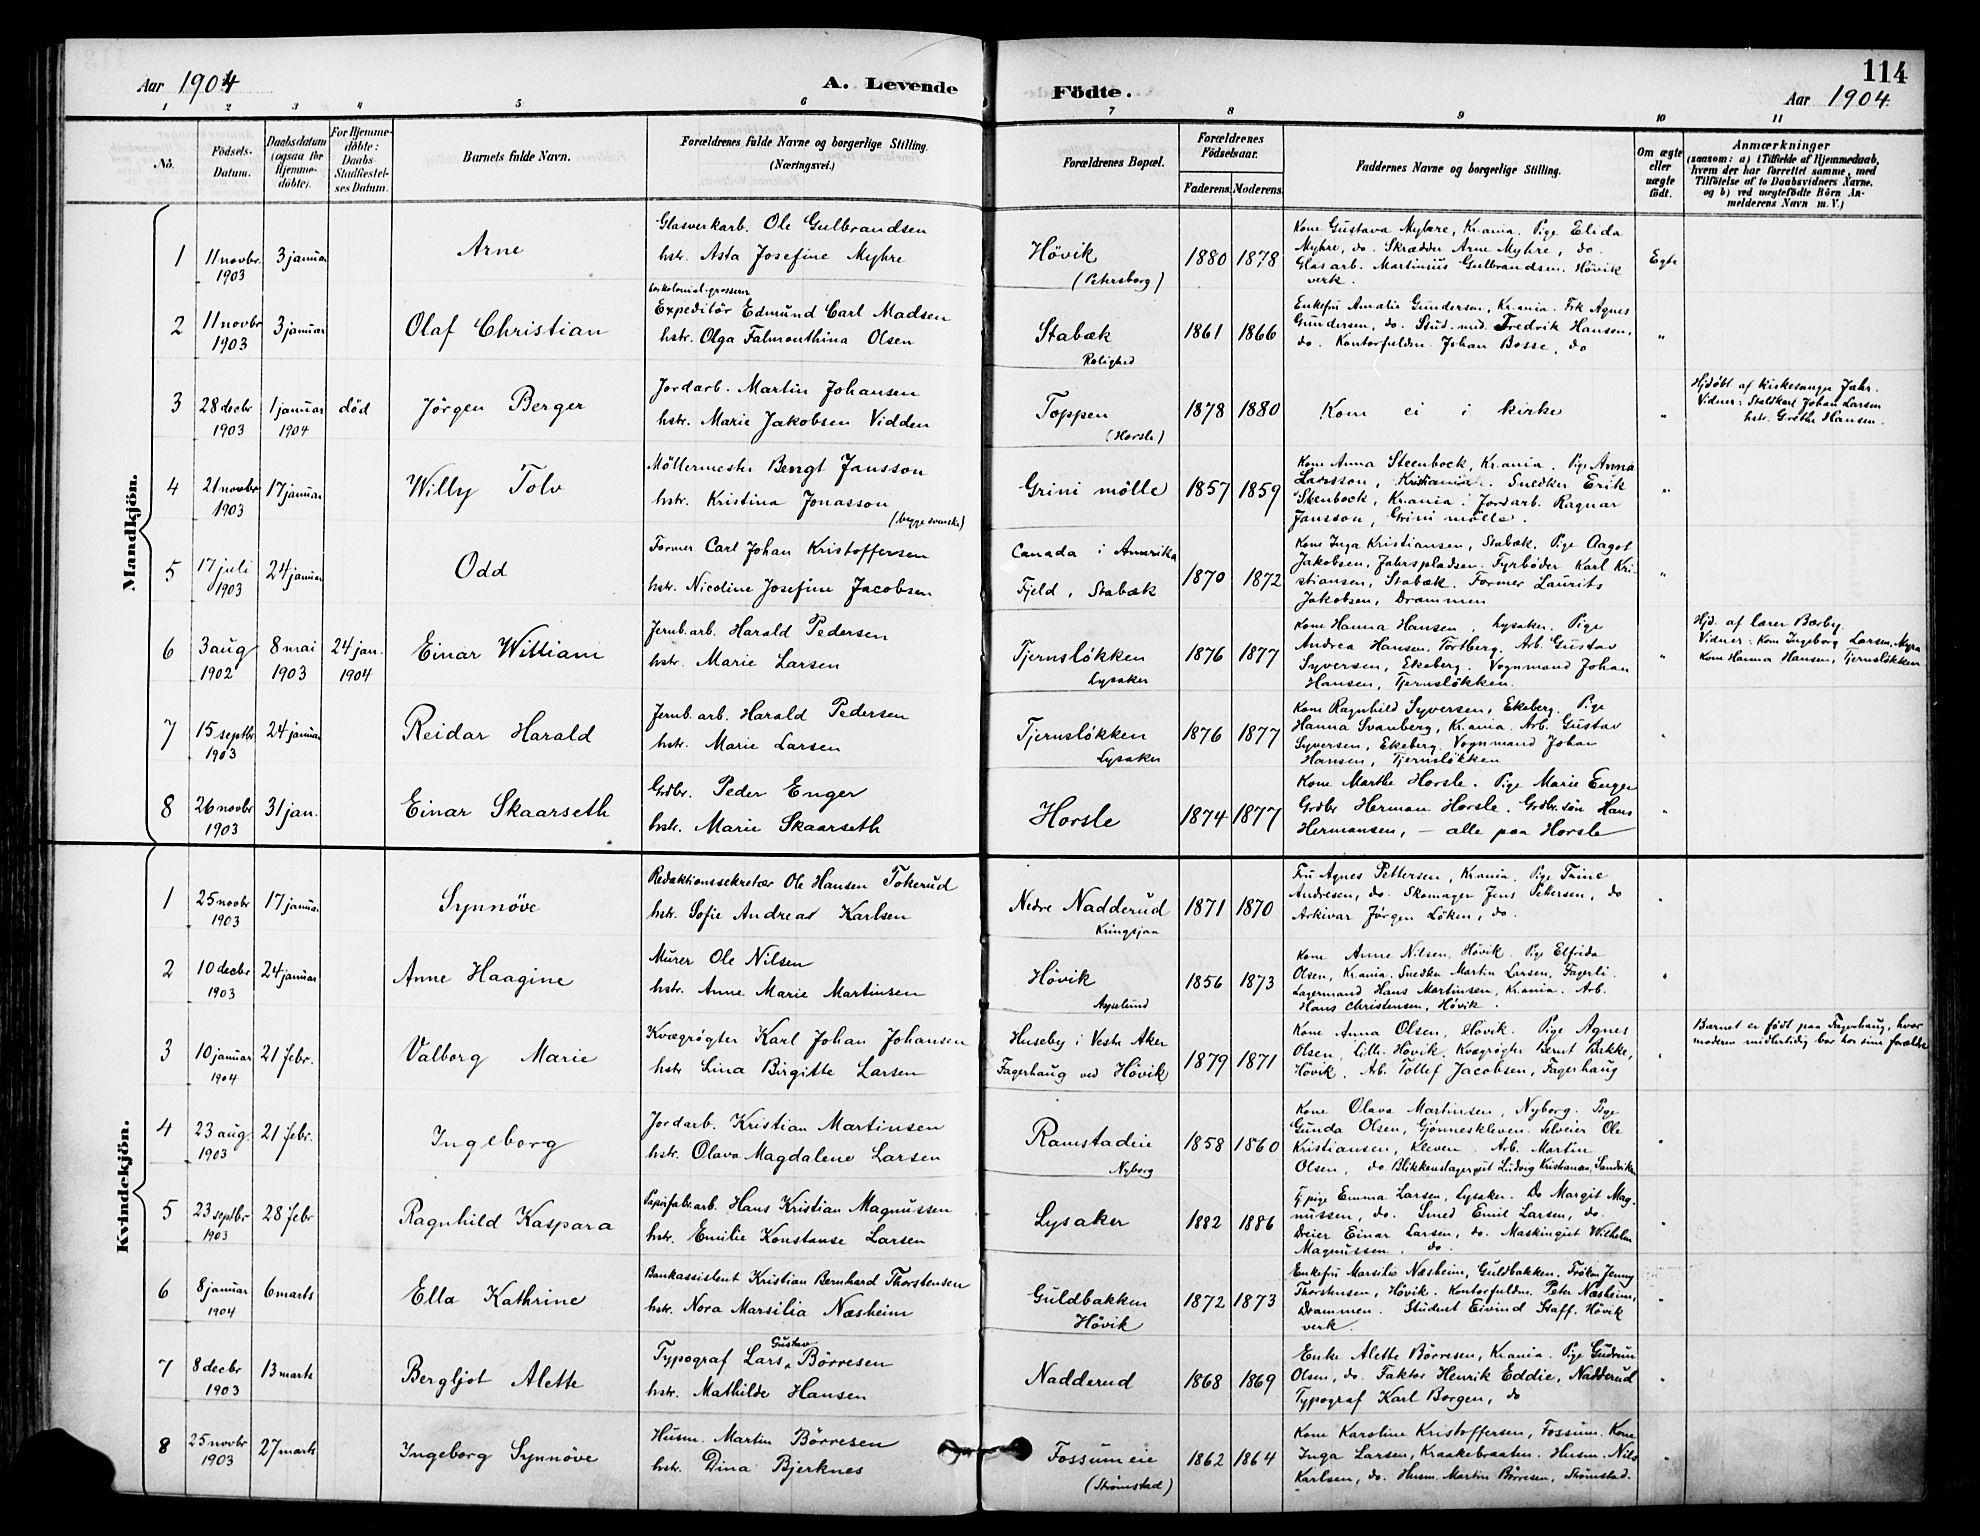 114
Aar 1904
A. Levende Födte.
Aar 1904
1 2 3 4 5 6 7 8 9 10 11
No.
Födsels-Datum.
Daabsdatum (ogsaa for Hjemme-döbte).
For Hjemme-döbte: Daabs-Stadfæstel-ses Datum.
Barnets fulde Navn.
Forældrenes fulde Navne og borgerlige Stilling. (Næringsvei.)
Forældrenes Bopæl.
Forældrenes Födselsaar.
Faderens. Moderens.
Faddernes Navne og borgerlige Stilling.
Om ægte eller uægte födt.
Anmærkninger
(saasom: a) i Tilfælde af Hjemmedaab, hvem der har forrettet samme, med Tilföielse af to Daabsvidners Navne, og b) ved uægtefödte Börn An-melderens Navn m. V.)
Mandkjön.
1 11 novbr. 1903 3 januar Arne
Glasverkarb. Ole Gulbrandsen
hstr. Asta Josefine Myhre
Hövik (Petersborg) 1880 1878
Kone Gustava Myhre, Kr.ania. Pige Elida
Myhre, do. Skrædder Arne Myhre, do.
Glasarb. Martinius Gulbrandsen, Hövik
verk.
Egte
2 11 novbr 1903 3 januar Olaf Christian
Expeditör Edmund Carl Madsen
hstr. Olga Falmonthina Olsen
Stabæk Rolighed 1861 1866
Enkefru Amalie Gundersen, Kr.ania. Frk Agnes
Gundersen, do. Stud. med. Fredrik Hansen,
do. Kontorfuldm. Johan Bosse, do
"
3 28 decbr 1903 1 januar 1904 död Jörgen Berger
Jordarb. Martin Johansen
hstr. Marie Jakobsen Vidden
Toppen (Horsle) 1878 1880
Kom ei i kirke
"
Hjdöbt af kirkesanger Jahr.
Vidner: Staldkarl Johan Larsen
hstr. Grethe Hansen.
4 21 novbr 1903 17 januar Willy Tolv
Möllermester Bengt Jansson
hstr. Kristina Jonasson
(begge svenske)
Grini mölle 1857 1859
Kone Anna Steenbock, Kr.ania. Pige Anna
Larsson, Kristiania. Snedker Erik
Stenbock, Kr.ania. Jordarb. Ragnar
Jansson, Grini mölle.
"
5 17 juli 1903 24 januar Odd
Former Carl Johan Kristoffersen
hstr. Nicoline Josefine Jacobsen
Canada i Amerika
Fjeld, Stabæk 1870 1872
Kone Inga Kristiansen, Stabæk. Pige Aagot
Jakobsen, Jahrspladsen. Fyrböder Karl Kri-
stiansen, Stabæk. Former Laurits
Jakobsen, Drammen
"
6 3 aug 1902 8 mai 1903 24 jan. 1904 Einar William
Jernb.arb. Harald Pedersen
hstr. Marie Larsen
Tjernslökken Lysaker 1876 1877
Kone Hanna Hansen, Lysaker. Pige
Andrea Hansen, Tortberg. Arb. Gustav
Syversen, Ekeberg. Vognmand Johan
Hansen, Tjernslökken.
"
Hjd. af lærer Bærby.
Vidner: Kone Ingeborg Larsen, Myra
Kone Hanna Hansen, Tjernslökken
7 15 septbr 1903 24 januar Reidar Harald
Jernb.arb. Harald Pedersen
hstr. Marie Larsen
Tjernslökken Lysaker 1876 1877
Kone Ragnhild Syversen, Ekeberg. Pige
Hanna Svanberg, Kr.ania. Arb. Gustav
Syversen, Ekeberg. Vognmand Johan
Hansen, Tjernslökken
"
8 26 novbr 1903 31 jan. Einar Skaarseth
Grdbr. Peder Enger
hstr. Marie Skaarseth
Horsle 1874 1877
Kone Marthe Horsle. Pige Marie Enger
Grdbr Herman Horsle. Grdbr.sön Hans
Hermansen, – alle paa Horsle
"
Kvindekjön.
1 25 novbr 1903 17 januar Synnöve
Redaktionssekretær Ole Hansen Tokerud
hstr. Sofie Andrea Karlsen
Nedre Nadderud Kringsjaa 1871 1870
Fru Agnes Pettersen, Kr.ania. Pige Trine
Andresen, do. Skomager Jens Petersen, do
Arkivar Jörgen Löken, do.
"
2 10 decbr 1903 24 januar Anne Haagine
Murer Ole Nilsen
hstr. Anne Marie Martinsen
Hövik 1856 1873
Kone Anne Nilsen, Hövik. Pige Elfrida
Olsen, Kr.ania. Snedker Martin Larsen, Fagerli.
Lagermand Hans Martinsen, Kr.ania. Arb.
Hans Christensen, Hövik.
"
3 10 januar 1904 21 febr. Valborg Marie
Kvægrögter Karl Johan Johansen
hstr Lina Birgitte Larsen
Huseby i Vestr Aker
Fagerhaug ved Hövik 1879 1871
Kone Anna Olsen, Hövik. Pige Agnes
Olsen, Lille Hövik. Kvægrögter Bernt Bakke,
Hövik. Arb. Tollef Jacobsen, Fagerhaug
"
Barnet er födt paa Fagerhaug, hvor
moderen midlertidig bor hos sine forældre
4 23 aug. 1903 21 febr. Ingeborg
Jordarb. Kristian Martinsen
hstr. Olava Magdalene Larsen
Ramstadeie Nyborg 1858 1860
Kone Olava Martinsen, Nyborg. Pige
Gunda Olsen, Gjönneskleven. Selveier Ole
Kristiansen, Kleven. Arb. Martin
Olsen, do. Blikkenslagergut Ludvig Kristiansen, Sandviken
"
5 23 septbr 1903 28 febr Ragnhild Kaspara
Papirfabr.arb. Hans Kristian Magnussen
hstr. Emilie Konstanse Larsen
Lysaker 1882 1886
Tj.pige Emma Larsen, Lysaker. Do Margit Mag-
nussen, do. Smed Emil Larsen, do.
Dreier Einar Larsen, do. Maskingut Wilhelm
Magnussen, do.
"
6 8 januar 1904 6 marts Ella Kathrine
Bankassistent Kristian Bernhard Thorstensen
hstr. Nora Marsilia Næsheim
Guldbakken Hövik 1872 1873
Enkefru Marsilie Næsheim, Guldbakken. Fröken Jenny
Thorstensen, Hövik. Kontorfuldm. Peter Næsheim,
Drammen. Student Eivind Staff, Hövik
verk.
"
7 8 decbr 1903 13 marts Bergljot Alette
Typograf Lars Gustav Börresen
hstr. Mathilde Hansen
Nadderud 1868 1869
Enke Alette Börresen, Kr.ania. Pige Gudrun
Olsen, do. Faktor Henrik Eddie, Nadderud
Typograf Karl Borgen, do
"
8 25 novbr 1903 27 marts Ingeborg Synnöve
Husm. Martin Börresen
hstr. Dina Bjerknes
Fossumeie (Strömstad) 1862 1864
Kone Karoline Kristoffersen, Fossum. Kone
Inga Larsen, Kraakebraaten. Husm. Nils
Karlsen, do. Husm. Martin Börresen, Strömstad.
"